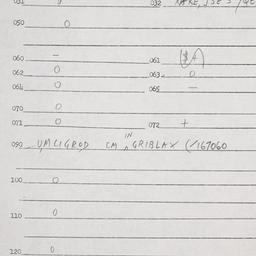 031 0 032
050 0
060 – 061
062 0 063 0
064 0 065 –
070 0
071 0 072 +
090 UMCIGROD CM IN GRIBLAX (/167060
100 0
110 0
120 0